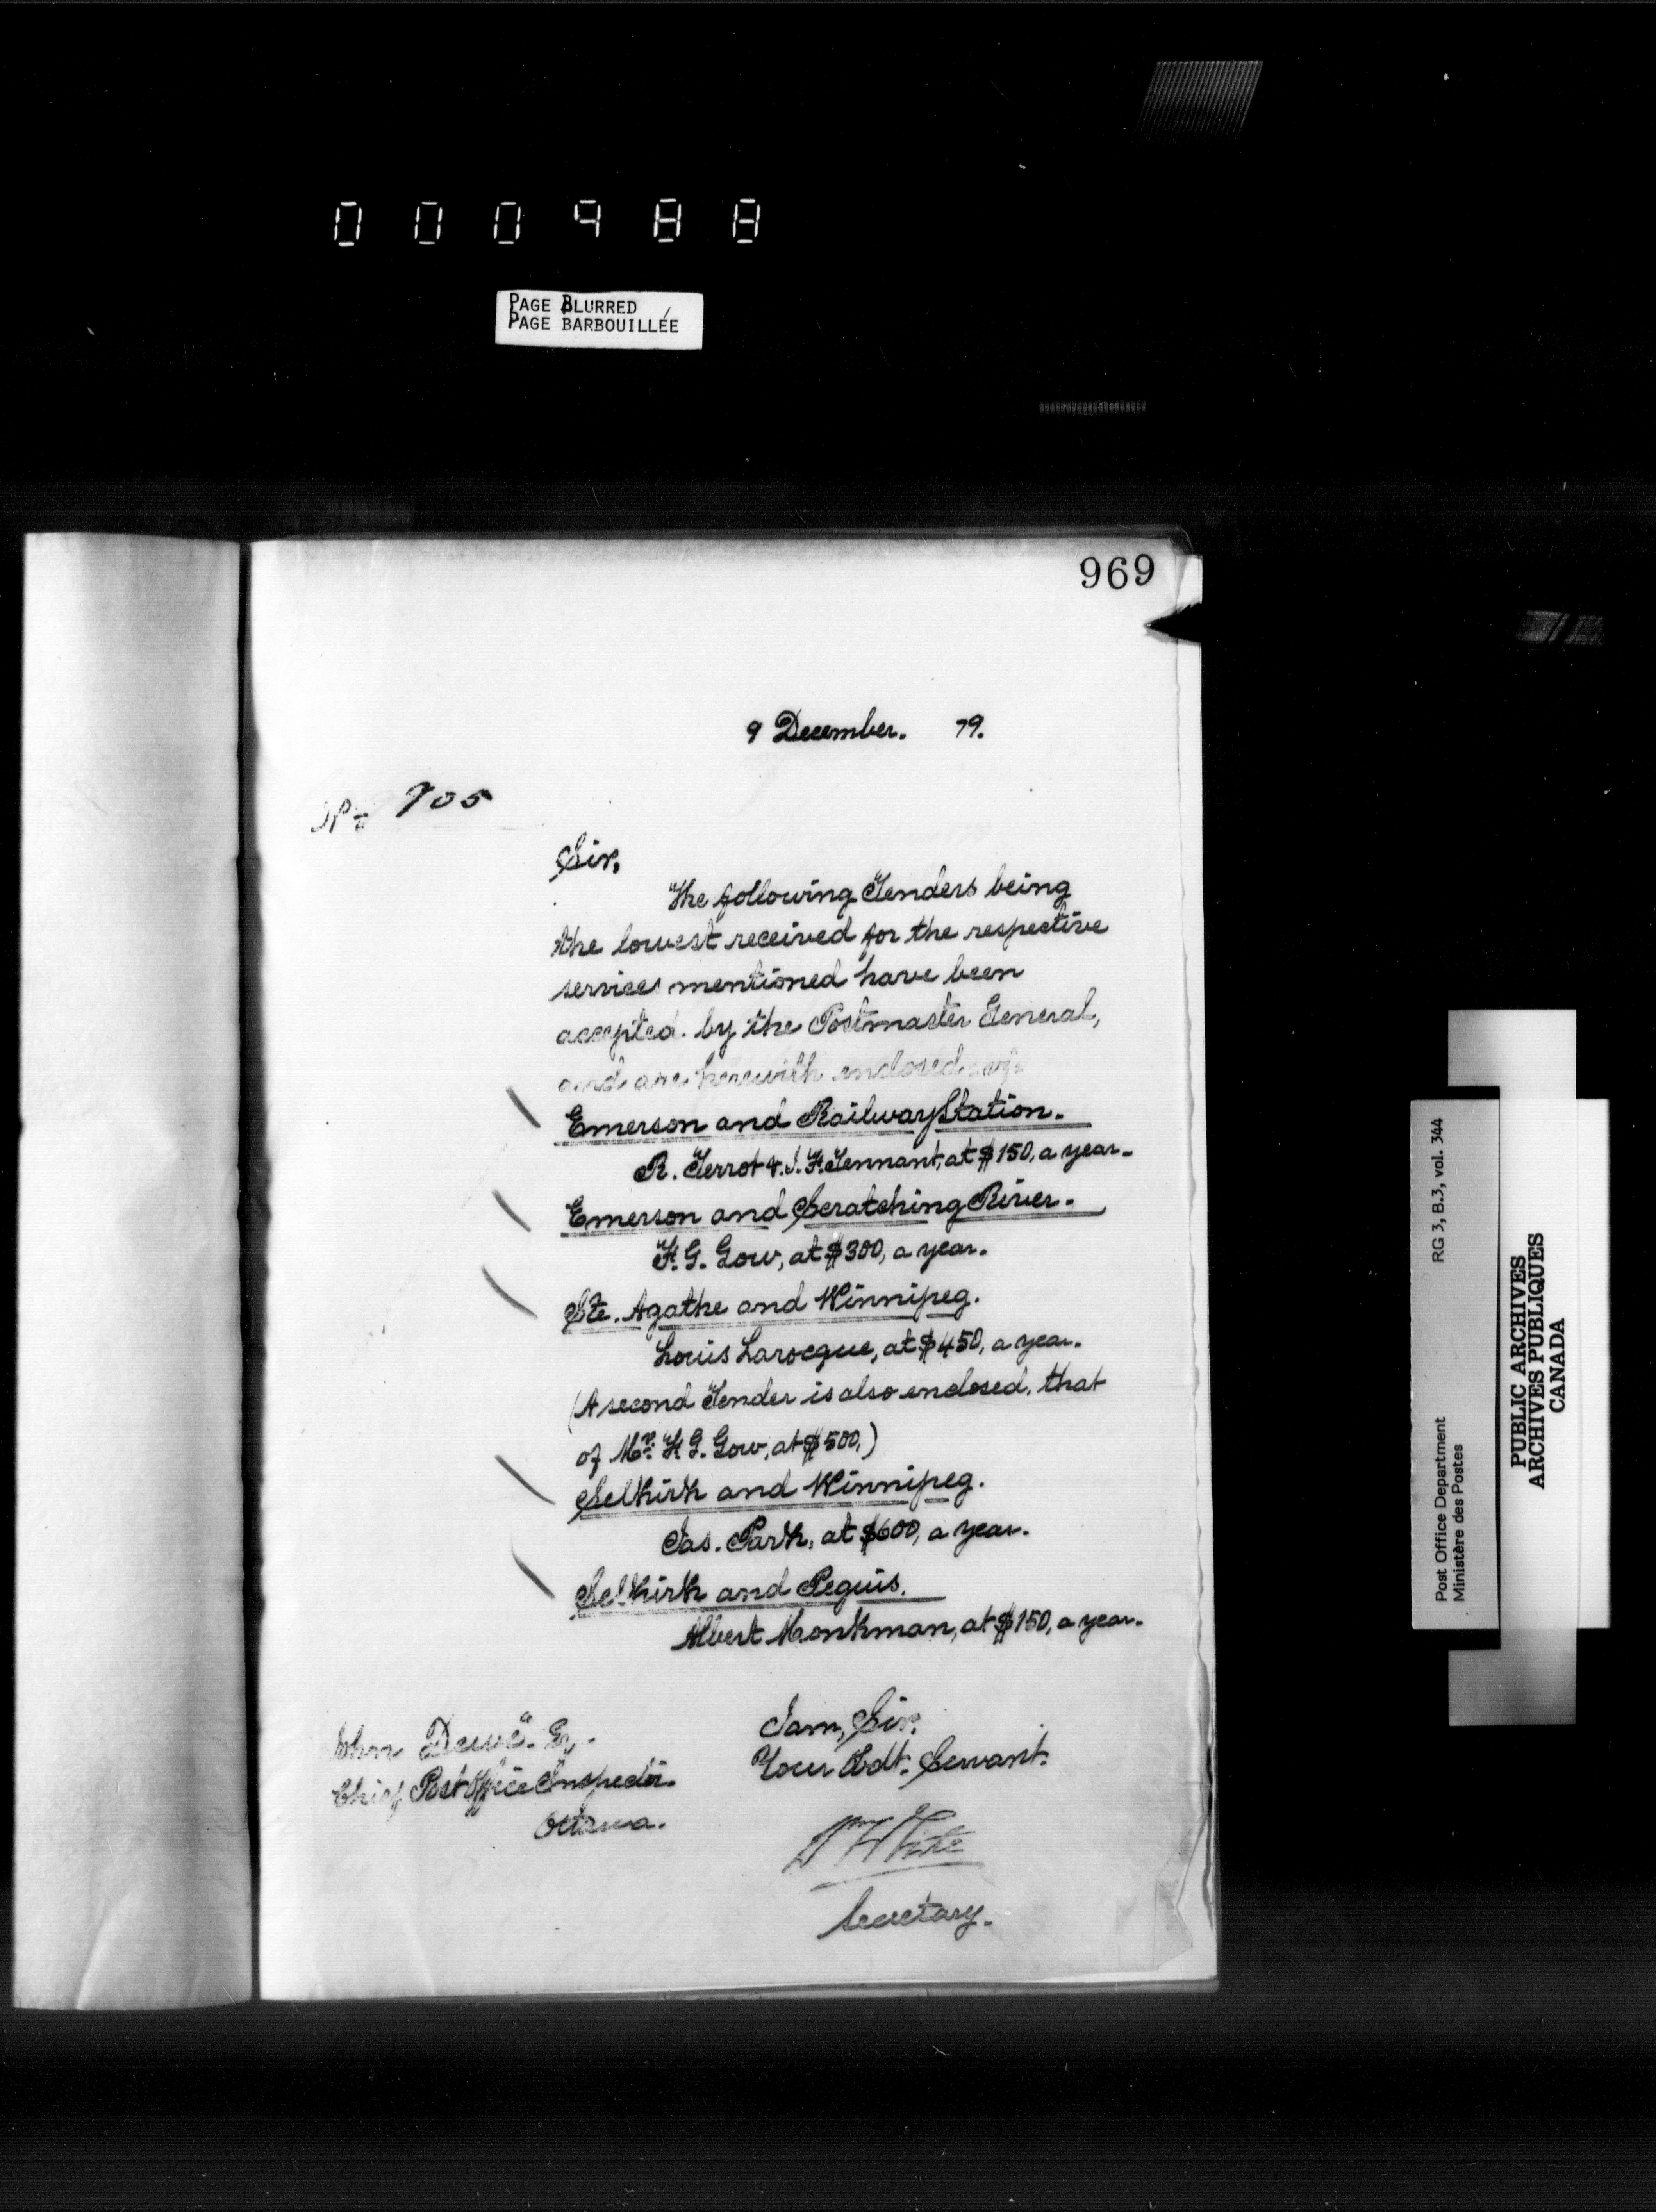 000988
PAGE BLURRED
PAGE BARBOUILLÉE
969
9 December. 79.
No 905
Sir,
The following Tenders being
the lowest received for the respective
services mentioned have been
accepted by the Postmaster General,
and are herewith enclosed
Emerson and Railway Station.
R. Terrot & J. F. Tennant, at $150, a year.
Emerson and Scratching River.
F. G. Gow, at $300, a year.
Ste. Agathe and Winnipeg.
Louis Larocque, at $450, a year.
(A second Tender is also enclosed, that
of Mr. F. G. Gow, at $500,)
Selkirk and Winnipeg.
Jas. Park, at $600, a year.
Selkirk and Peguis.
Albert Monkman, at $150, a year.
I am, Sir,
Your Obdt. Servant.
Wm White
Secretary.
John Dewé Eq.
Chief Post Office Inspector.
Ottawa.
RG 3, B.3, vol. 344
Post Office Department
Ministère des Postes
PUBLIC ARCHIVES
ARCHIVES PUBLIQUES
CANADA